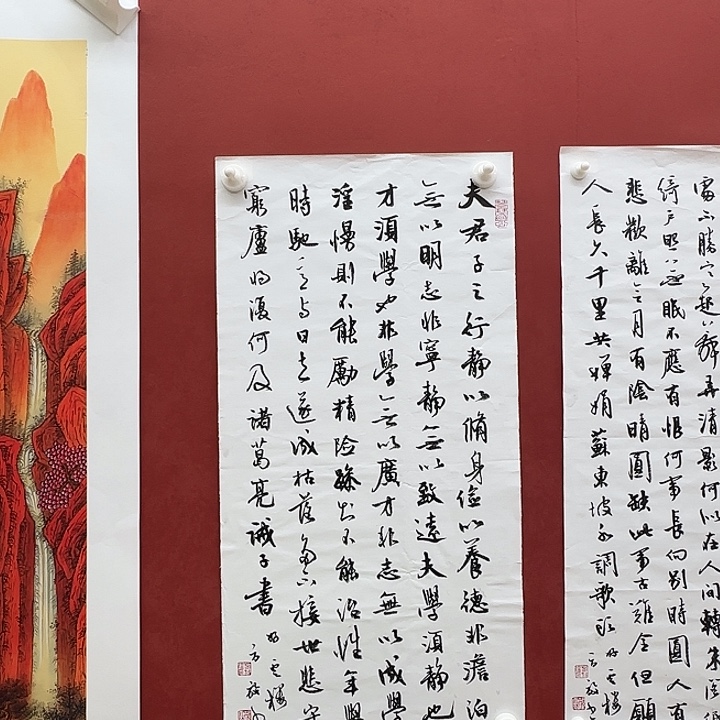 夫君子之行静以脩身儉以養德非澹泊
無以明志非寧静無以致遠夫學須静也
才須學也非學無以廣才非志無以成學
淫慢則不能勵精險躁則不能治性年與
時馳意与日去遂成枯落多不接世悲守
窮廬将復何及諸葛亮誡子書
絝户照無眠不應有恨何事長向别時圓人有
悲歡離合月有陰晴圓缺此事古難全但願
人長久千里共嬋娟蘇東坡水調歌頭